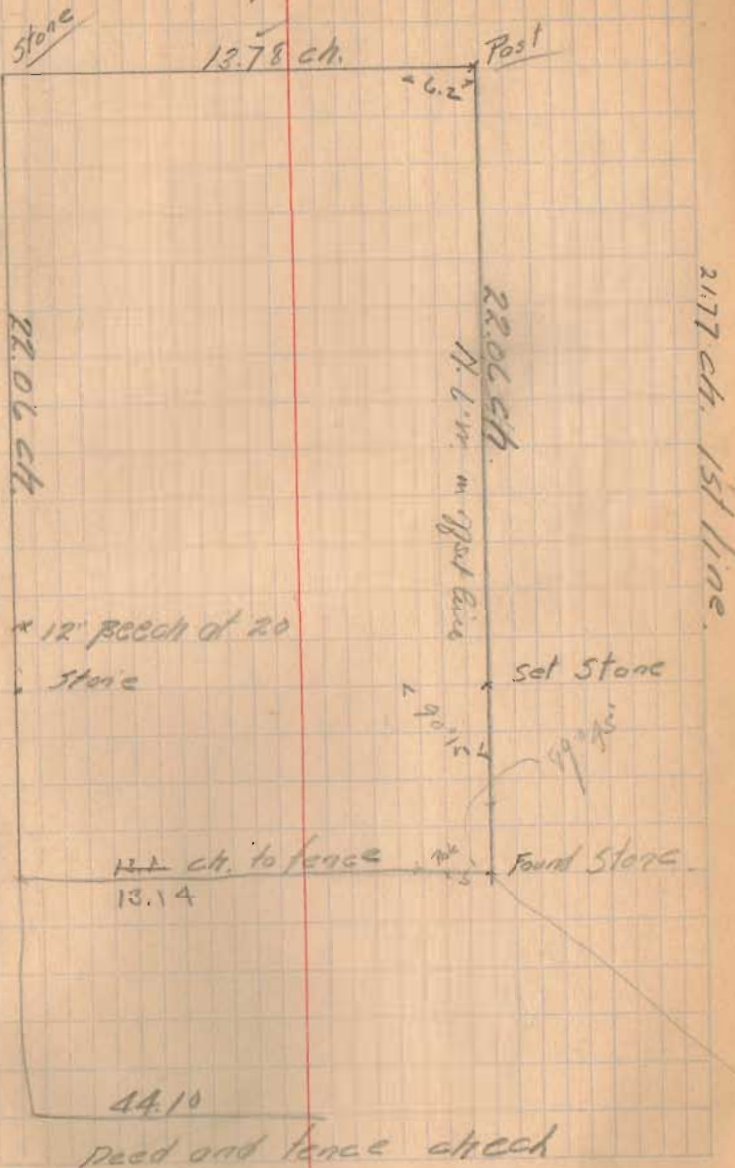 Stone
13.78 ch.
Post
6.2
22.06 ch.
22.06 ch.
21.77 ch. 1st line.
offset line
12" Beech at 20
Stone
Set Stone
90° 15'
89° 45'
13.1 ch. to fence
13.14
Found Stone.
44.10
Deed and fence check